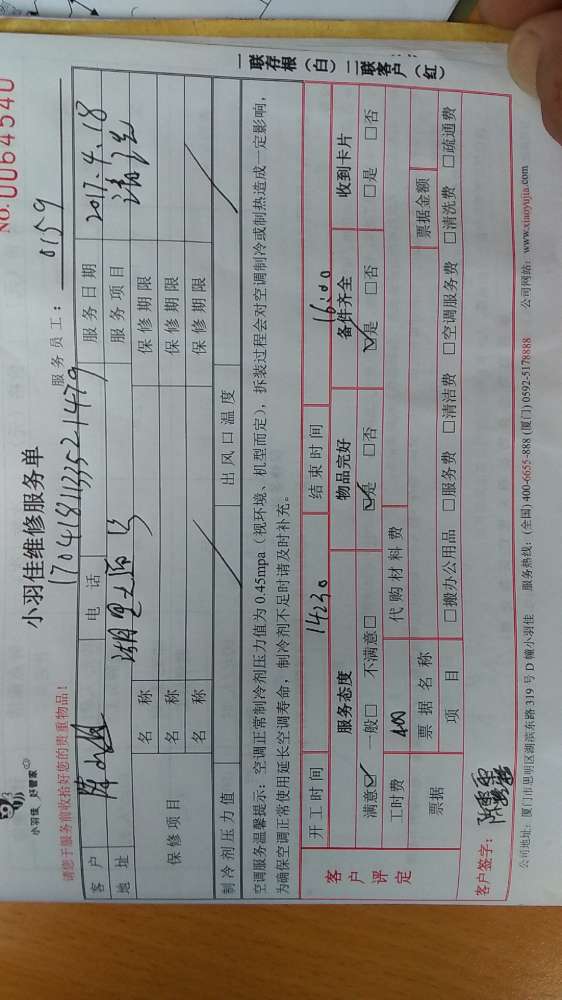 小羽佳 好管家
小羽佳维修服务单
NO. 0064540
请您于服务前收拾好您的贵重物品！
170418113521479
服务员工： 0159
客户 陈 电话 服务日期 2017.4.18
地址 湖里 服务项目 清洗
保修项目 名称 保修期限
名称 保修期限
名称 保修期限
制冷剂压力值 出风口温度
空调服务温馨提示：空调正常制冷剂压力值为0.45mpa（视环境、机型而定），拆装过程会对空调制冷或制热造成一定影响，
为确保空调正常使用延长空调寿命，制冷剂不足时请及时补充。
客户评定
开工时间 14:30 结束时间 16:00
服务态度 物品完好 备件齐全 收到卡片
满意☑ 一般□ 不满意□ ☑是 □否 ☑是 □否 □是 □否
工时费 400 代购材料费
票据 票据名称 票据金额
项目 □搬办公用品 □服务费 □清洁费 □空调服务费 □清洗费 □疏通费
客户签字：
公司地址：厦门市思明区湖滨东路319号D幢小羽佳 服务热线：(全国) 400-6655-888 (厦门) 0592-5178888 公司网站：www.xiaoyujia.com
一联存根（白）二联客户（红）